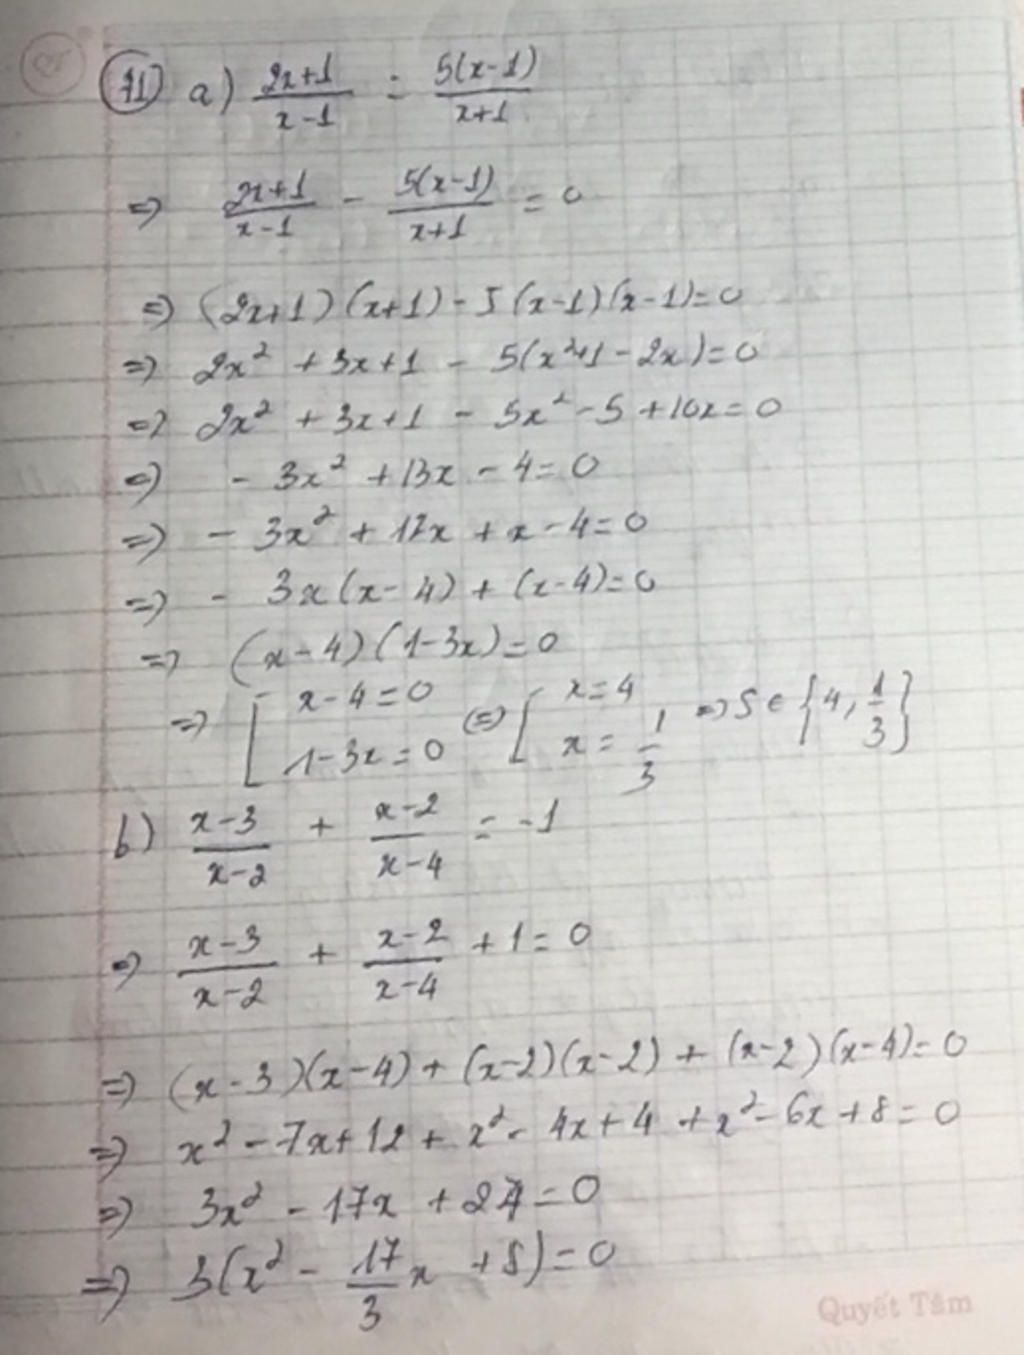 71) a) (2x+1)/(x-1) = 5(x-1)/(x+1)
=> (2x+1)/(x-1) - 5(x-1)/(x+1) = 0
=> (2x+1)(x+1) - 5(x-1)(x-1) = 0
=> 2x² + 3x + 1 - 5(x²+1-2x) = 0
=> 2x² + 3x + 1 - 5x² - 5 + 10x = 0
=> - 3x² + 13x - 4 = 0
=> - 3x² + 12x + x - 4 = 0
=> - 3x(x-4) + (x-4) = 0
=> (x-4)(1-3x) = 0
=> [ x-4=0 (=) [ x=4 => S ∈ {4, 1/3}
1-3x=0 x = 1/3
b) (x-3)/(x-2) + (x-2)/(x-4) = -1
=> (x-3)/(x-2) + (x-2)/(x-4) + 1 = 0
=> (x-3)(x-4) + (x-2)(x-2) + (x-2)(x-4) = 0
=> x² - 7x + 12 + x² - 4x + 4 + x² - 6x + 8 = 0
=> 3x² - 17x + 24 = 0
=> 3(x² - 17/3 x + 8) = 0
Quyết Tâm